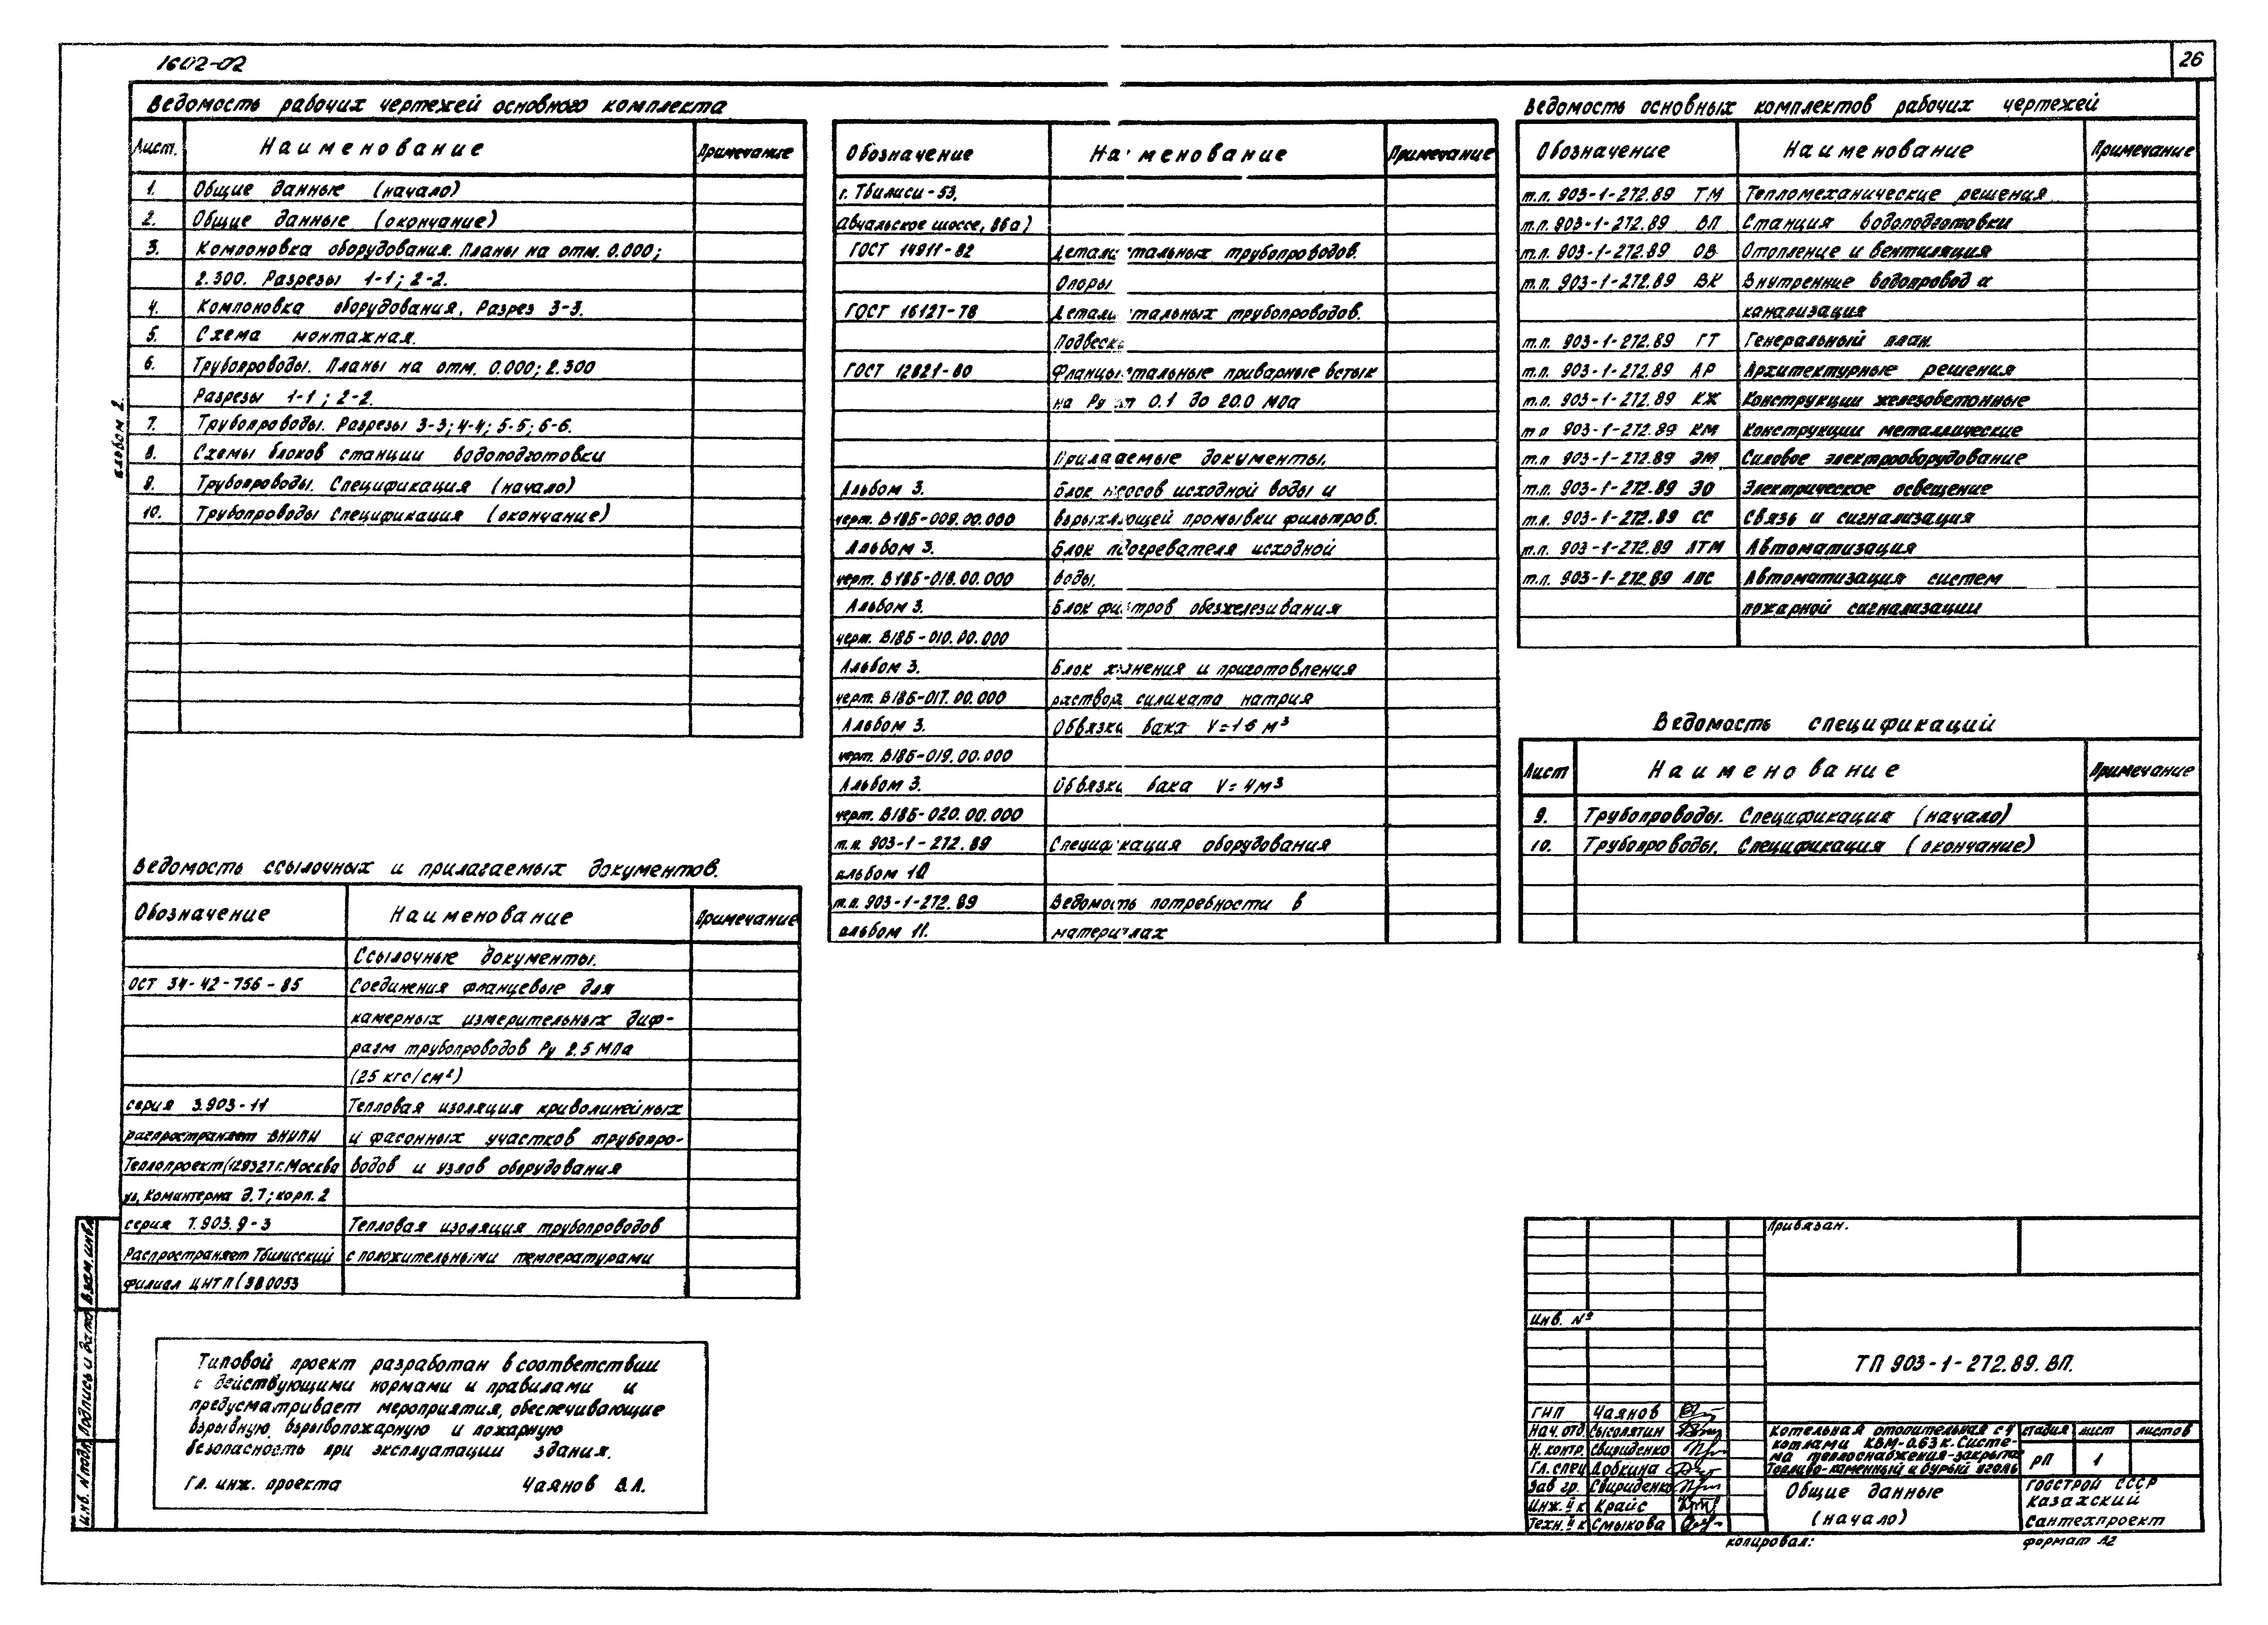 1602-02
26
Ведомость рабочих чертежей основного комплекта
Лист. Наименование Примечание
1. Общие данные (начало)
2. Общие данные (окончание)
3. Компоновка оборудования. Планы на отм. 0.000;
2.300. Разрезы 1-1; 2-2.
4. Компоновка оборудования. Разрез 3-3.
5. Схема монтажная.
6. Трубопроводы. Планы на отм. 0.000; 2.300
Разрезы 1-1; 2-2.
7. Трубопроводы. Разрезы 3-3; 4-4; 5-5; 6-6.
8. Схемы блоков станции водоподготовки
9. Трубопроводы. Спецификация (начало)
10. Трубопроводы Спецификация (окончание)
Ведомость ссылочных и прилагаемых документов.
Обозначение Наименование Примечание
Ссылочные документы.
ОСТ 34-42-756-85 Соединения фланцевые для
камерных измерительных диф-
разм трубопроводов Ру 2.5 МПа
(25 кгс/см²)
серия 3.903-11 Тепловая изоляция криволинейных
распространяет ВНИПИ и фасонных участков трубопро-
Теплопроект (129327 г. Москва водов и узлов оборудования
ул. Коминтерна д.7; корп. 2
серия 7.903.9-3 Тепловая изоляция трубопроводов
Распространяет Тбилисский с положительными температурами
филиал ЦИТП (380053
Обозначение Наименование Примечание
г. Тбилиси-53,
Авчальское шоссе, 86а)
ГОСТ 14911-82 Детали стальных трубопроводов.
Опоры
ГОСТ 16127-78 Детали стальных трубопроводов.
Подвески
ГОСТ 12821-80 Фланцы стальные приварные встык
на Ру от 0.1 до 20.0 МПа
Прилагаемые документы.
Альбом 3. Блок насосов исходной воды и
черт. В185-009.00.000 взрыхляющей промывки фильтров.
Альбом 3. Блок подогревателя исходной
черт. В185-018.00.000 воды.
Альбом 3. Блок фильтров обезжелезивания
черт. В185-010.00.000
Альбом 3. Блок хранения и приготовления
черт. В185-017.00.000 раствора силиката натрия
Альбом 3. Обвязка бака V=1.6 м³
черт. В185-019.00.000
Альбом 3. Обвязка бака V=4м³
черт. В185-020.00.000
т.п. 903-1-272.89 Спецификация оборудования
альбом 10
т.п. 903-1-272.89 Ведомость потребности в
альбом 11. материалах
Ведомость основных комплектов рабочих чертежей
Обозначение Наименование Примечание
т.п. 903-1-272.89 ТМ Тепломеханические решения
т.п. 903-1-272.89 ВП Станция водоподготовки
т.п. 903-1-272.89 ОВ Отопление и вентиляция
т.п. 903-1-272.89 ВК Внутренние водопровод и
канализация
т.п. 903-1-272.89 ГТ Генеральный план
т.п. 903-1-272.89 АР Архитектурные решения
т.п. 903-1-272.89 КЖ Конструкции железобетонные
т п 903-1-272.89 КМ Конструкции металлические
т.п 903-1-272.89 ЭМ Силовое электрооборудование
т.п. 903-1-272.89 ЭО Электрическое освещение
т.п. 903-1-272.89 СС Связь и сигнализация
т.п. 903-1-272.89 АТМ Автоматизация
т.п. 903-1-272.89 АПС Автоматизация систем
пожарной сигнализации
Ведомость спецификаций
Лист Наименование Примечание
9. Трубопроводы. Спецификация (начало)
10. Трубопроводы. Спецификация (окончание)
Типовой проект разработан в соответствии
с действующими нормами и правилами и
предусматривает мероприятия, обеспечивающие
взрывную, взрывопожарную и пожарную
безопасность при эксплуатации здания.
Гл. инж. проекта Чаянов В.А.
альбом 2.
Взам. инв.
Подпись и дата
Инв. N подл.
Привязан.
Инв. №
ТП 903-1-272.89. ВП.
ГИП Чаянов
Нач. отд. Сысолятин
Н. контр. Свириденко
Гл. спец. Добкина
Зав гр. Свириденко
Инж. II к Крайс
Техн. II к Смыкова
Котельная отопительная с 4
котлами КВМ-0.63 к. Систе-
ма теплоснабжения-закрытая
Топливо-каменный и бурый уголь
стадия лист листов
РП 1
Общие данные
(начало)
Госстрой СССР
Казахский
Сантехпроект
копировал: формат А2